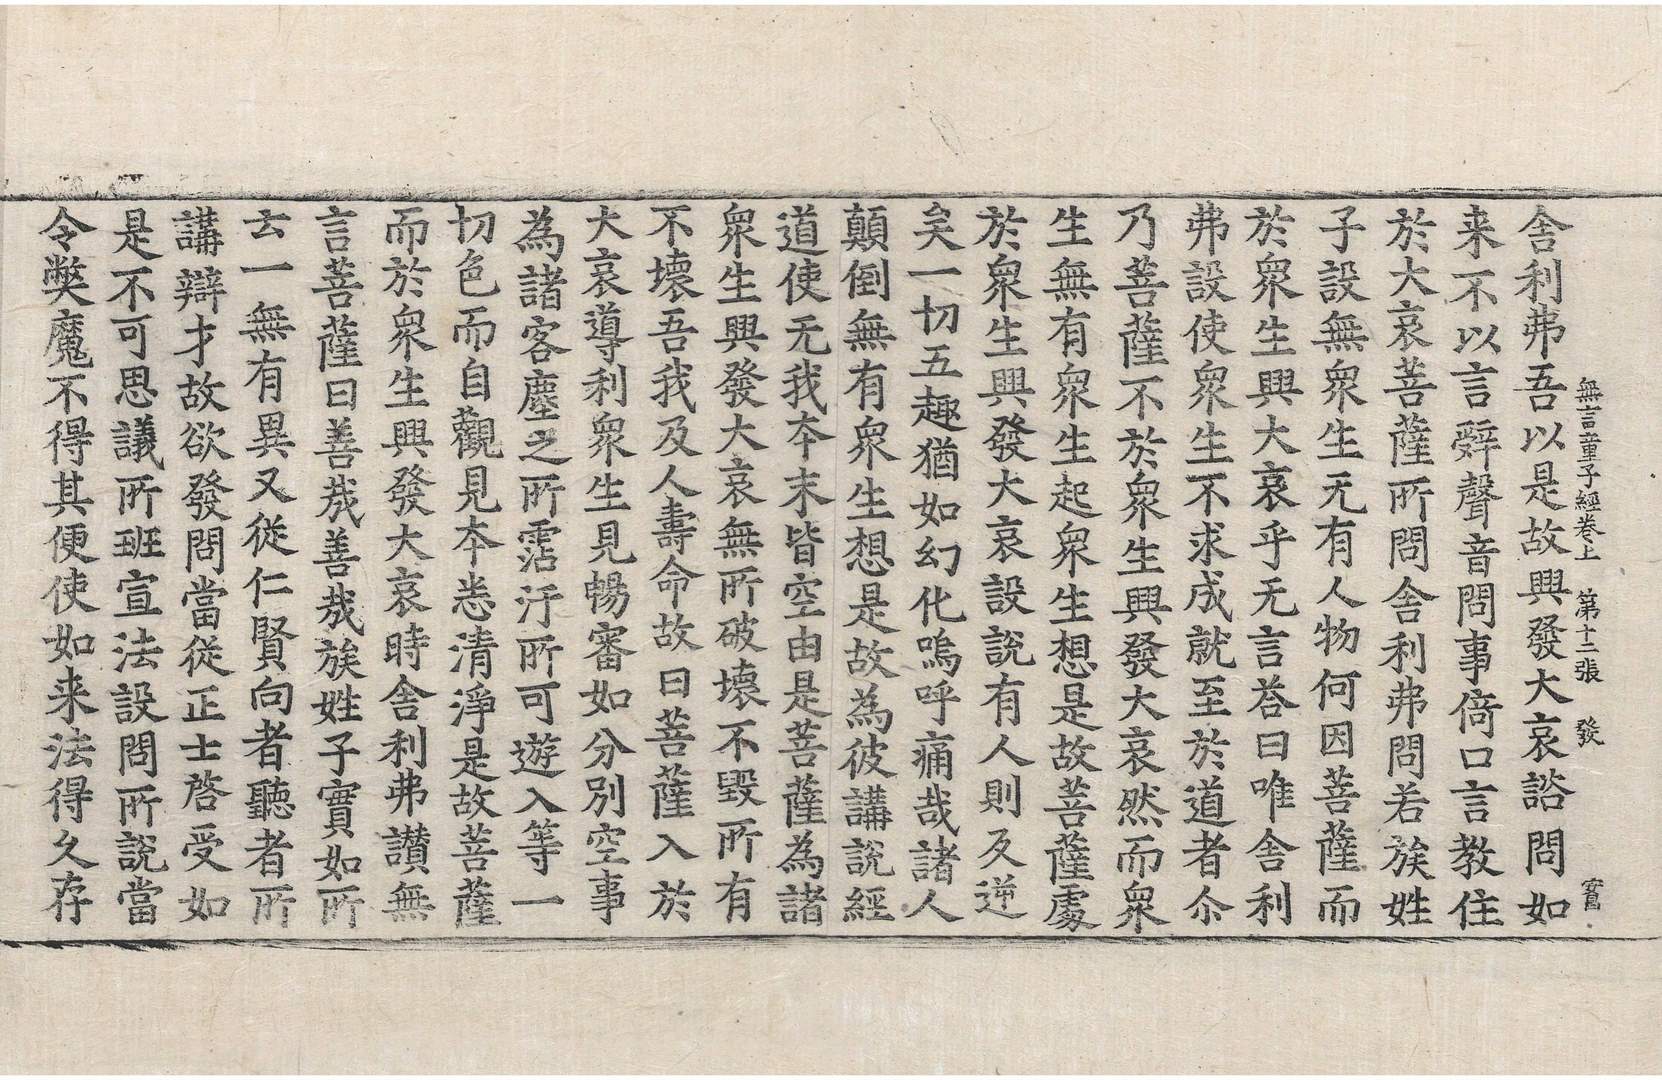 無言童子經卷上　第十二張　發　實昌
舍利弗吾以是故興發大哀諮問如
来不以言辝聲音問事倚口言教住
於大哀菩薩所問舍利弗問若族姓
子設無衆生无有人物何因菩薩而
於衆生興大哀乎无言荅曰唯舍利
弗設使衆生不求成就至於道者尒
乃菩薩不於衆生興發大哀然而衆
生無有衆生起衆生想是故菩薩處
於衆生興發大哀設說有人則反逆
矣一切五趣猶如幻化嗚呼痛哉諸人
顛倒無有衆生想是故為彼講說經
道使无我夲末皆空由是菩薩為諸
衆生興發大哀無所破壞不毀所有
不壞吾我及人壽命故曰菩薩入於
大哀導利衆生見暢審如分別空事
為諸客塵之所霑汙所可遊入等一
切色而自觀見夲悉清淨是故菩薩
而於衆生興發大哀時舍利弗讃無
言菩薩曰善㢤善㢤族姓子實如所
云一無有異又從仁賢向者聽者所
講辯才故欲發問當從正士啓受如
是不可思議所班宣法設問所說當
令弊魔不得其便使如来法得久存